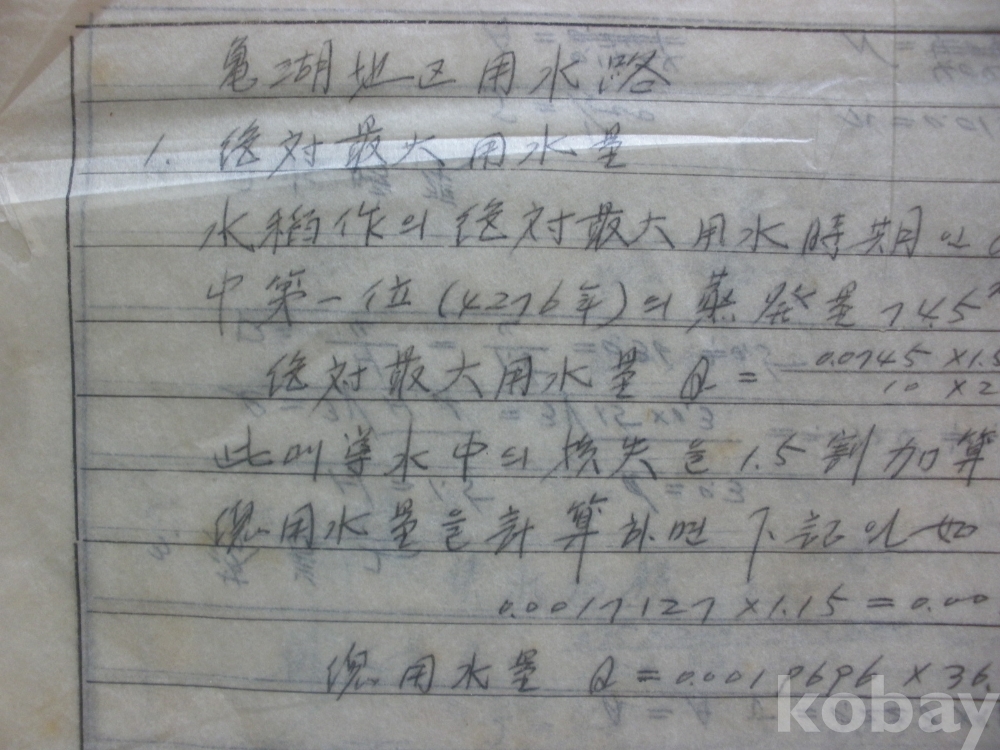 亀湖地区用水路
1. 絶対最大用水量
水稻作의 絶対最大用水時期인
中第一位(4276年)의 蒸発量 74.5
絶対最大用水量 Q = 0.0745 ×1.5 / 10 ×2
此에 導水中의 損失을 1.5割 加算
総用水量을 計算하면 下記와 如
0.0017127 ×1.15 = 0.00
総用水量 Q = 0.0019696 × 36.
kobay